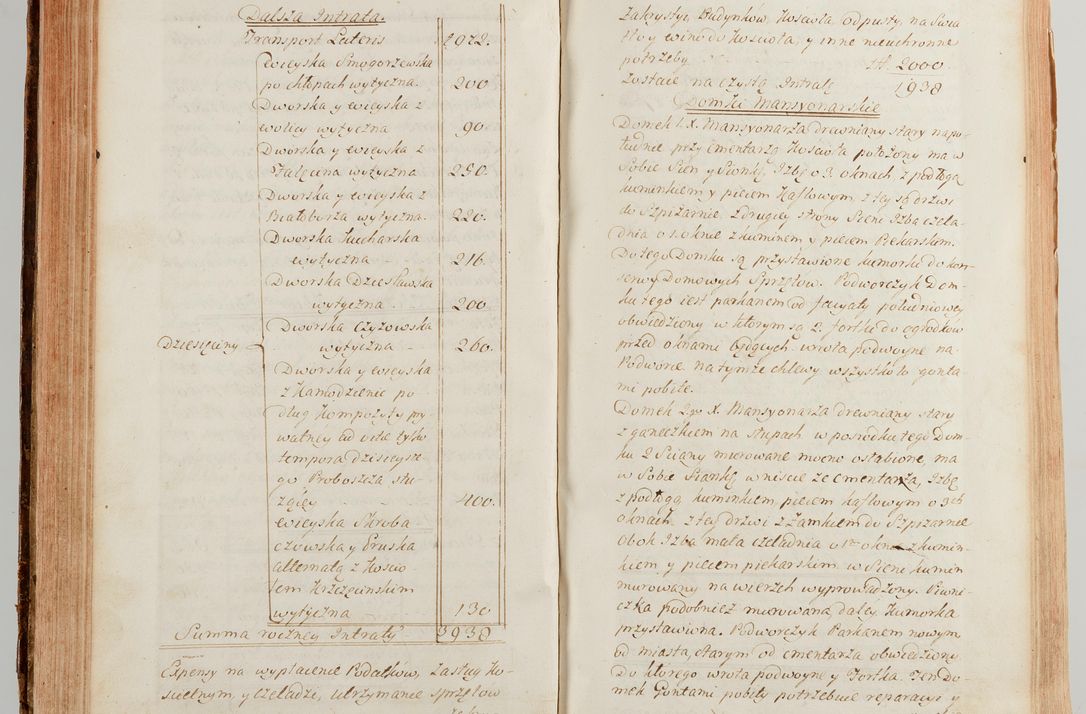 Dalsza Intrata.
Transport Lateris 1972.
Wieyska Smogorzewska
po chłopach wytyczna. 200
Dworska y wieyska z
Wolicy wytyczna 90
Dworska y wieyska z
wytyczna 250.
Dworska y wieyska z
Białoborza wytyczna. 220.
Dworska Kucharska
wytyczna 216.
Dworska Dziesławska
wytyczna 200
Dworska Czyżowska
Dziesięciny wytyczna 260.
Dworska y wieyska
z Kamodzienic po
dług Kompozyty pry
watney ad vitæ tylko
tempora dzisieysze
go Proboszcza słu
żącey 400.
Wieyska Skroba
czowska y Pruska
alternatą z Kościo
łem Krzczęcinskim
wytyczna 130
Summa roczney Intraty 3938
Expensy na wypłacenie Podatków, Zasług Ko-
scielnym, y czeladzi, utrzymanie sprzętow
Zakrystyi, Budynków, Kościoła, odpusty, na Swia
tło y wino do Kościoła, y inne nieuchronne
potrzeby zł 2000.
Zostaie na czystą Intratę 1938
Domki Mansyonarskie
Domek 1. X. Mansyonarza drewniany stary na po-
łudnie przy cmentarzu Kościoła położony ma w
Sobie Sien y Sionkę, Izbę o 3. oknach z podłogą
kuminkiem y piecem Kaflowym, z tey są drzwi
do Szpiżarnie. Z drugiey strony Sieni Izba czela-
dnia o 1. oknie z kuminem y piecem Piekarskim.
Do tego Domku są przystawione kumorki do kon-
serwy Domowych Sprzętow. Podworczyk Dom-
ku tego iest parkanem od facyaty południowey
obwiedziony w którym są 2. fortki do ogródków
przed oknami będących. wrota podwoyne na
Podworce na tymże chlewy wszystko to gonta
mi pobite.
Domek 2go X. Mansyonarza drewniany stary
z ganeczkiem na słupach w posrodku tego Dom-
ku 2 Sciany murowane mocno osłabione, ma
w Sobie Sianki wniscie ze cmentarza, Izbę
z podłogą kuminkiem, piecem kaflowym o 3ch
oknach. z tey drzwi z Zamkiem do Szpiżarnie
obok Izba mała czeladnia o 1m oknie z kumin-
kiem y piecem piekarskim. w Sieni kumin
murowany na wierzch wyprowadzony. Piwni-
czka podobnież murowana daley kumorka
przystawiona. Podworczyk Parkanem nowym
od miasta, starym od cmentarza obwiedziony.
Do którego wrota podwoyne y Fortka. Ten Do-
mek Gontami pobity potrzebuie reparacyi y